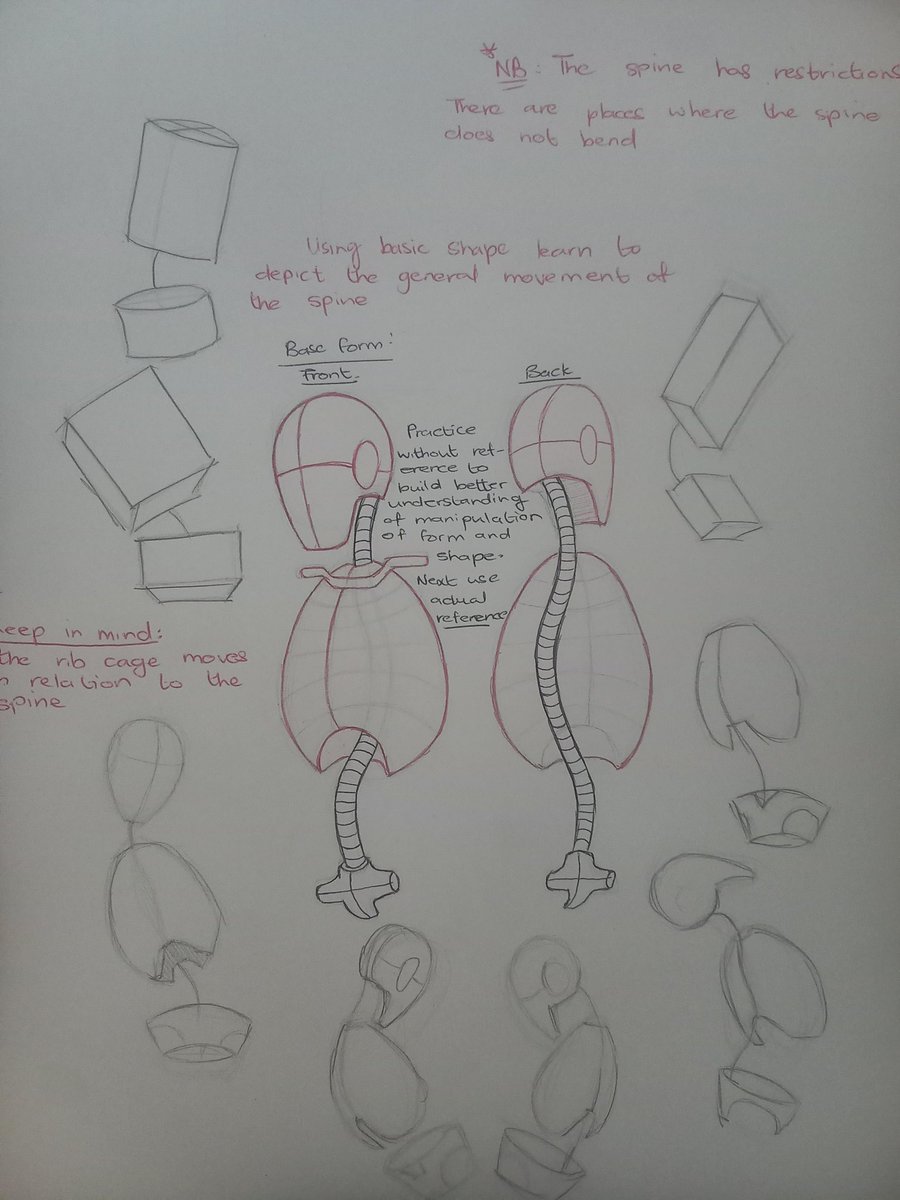 *
NB: The spine has restrictions
There are places where the spine
does not bend
Using basic shape learn to
depict the general movement of
the spine
Base form:
Front.
Back
Practice
without ref-
erence to
build better
understanding
of manipulation
of form and
shape.
Next use
actual
reference
eep in mind:
the rib cage moves
n relation to the
spine